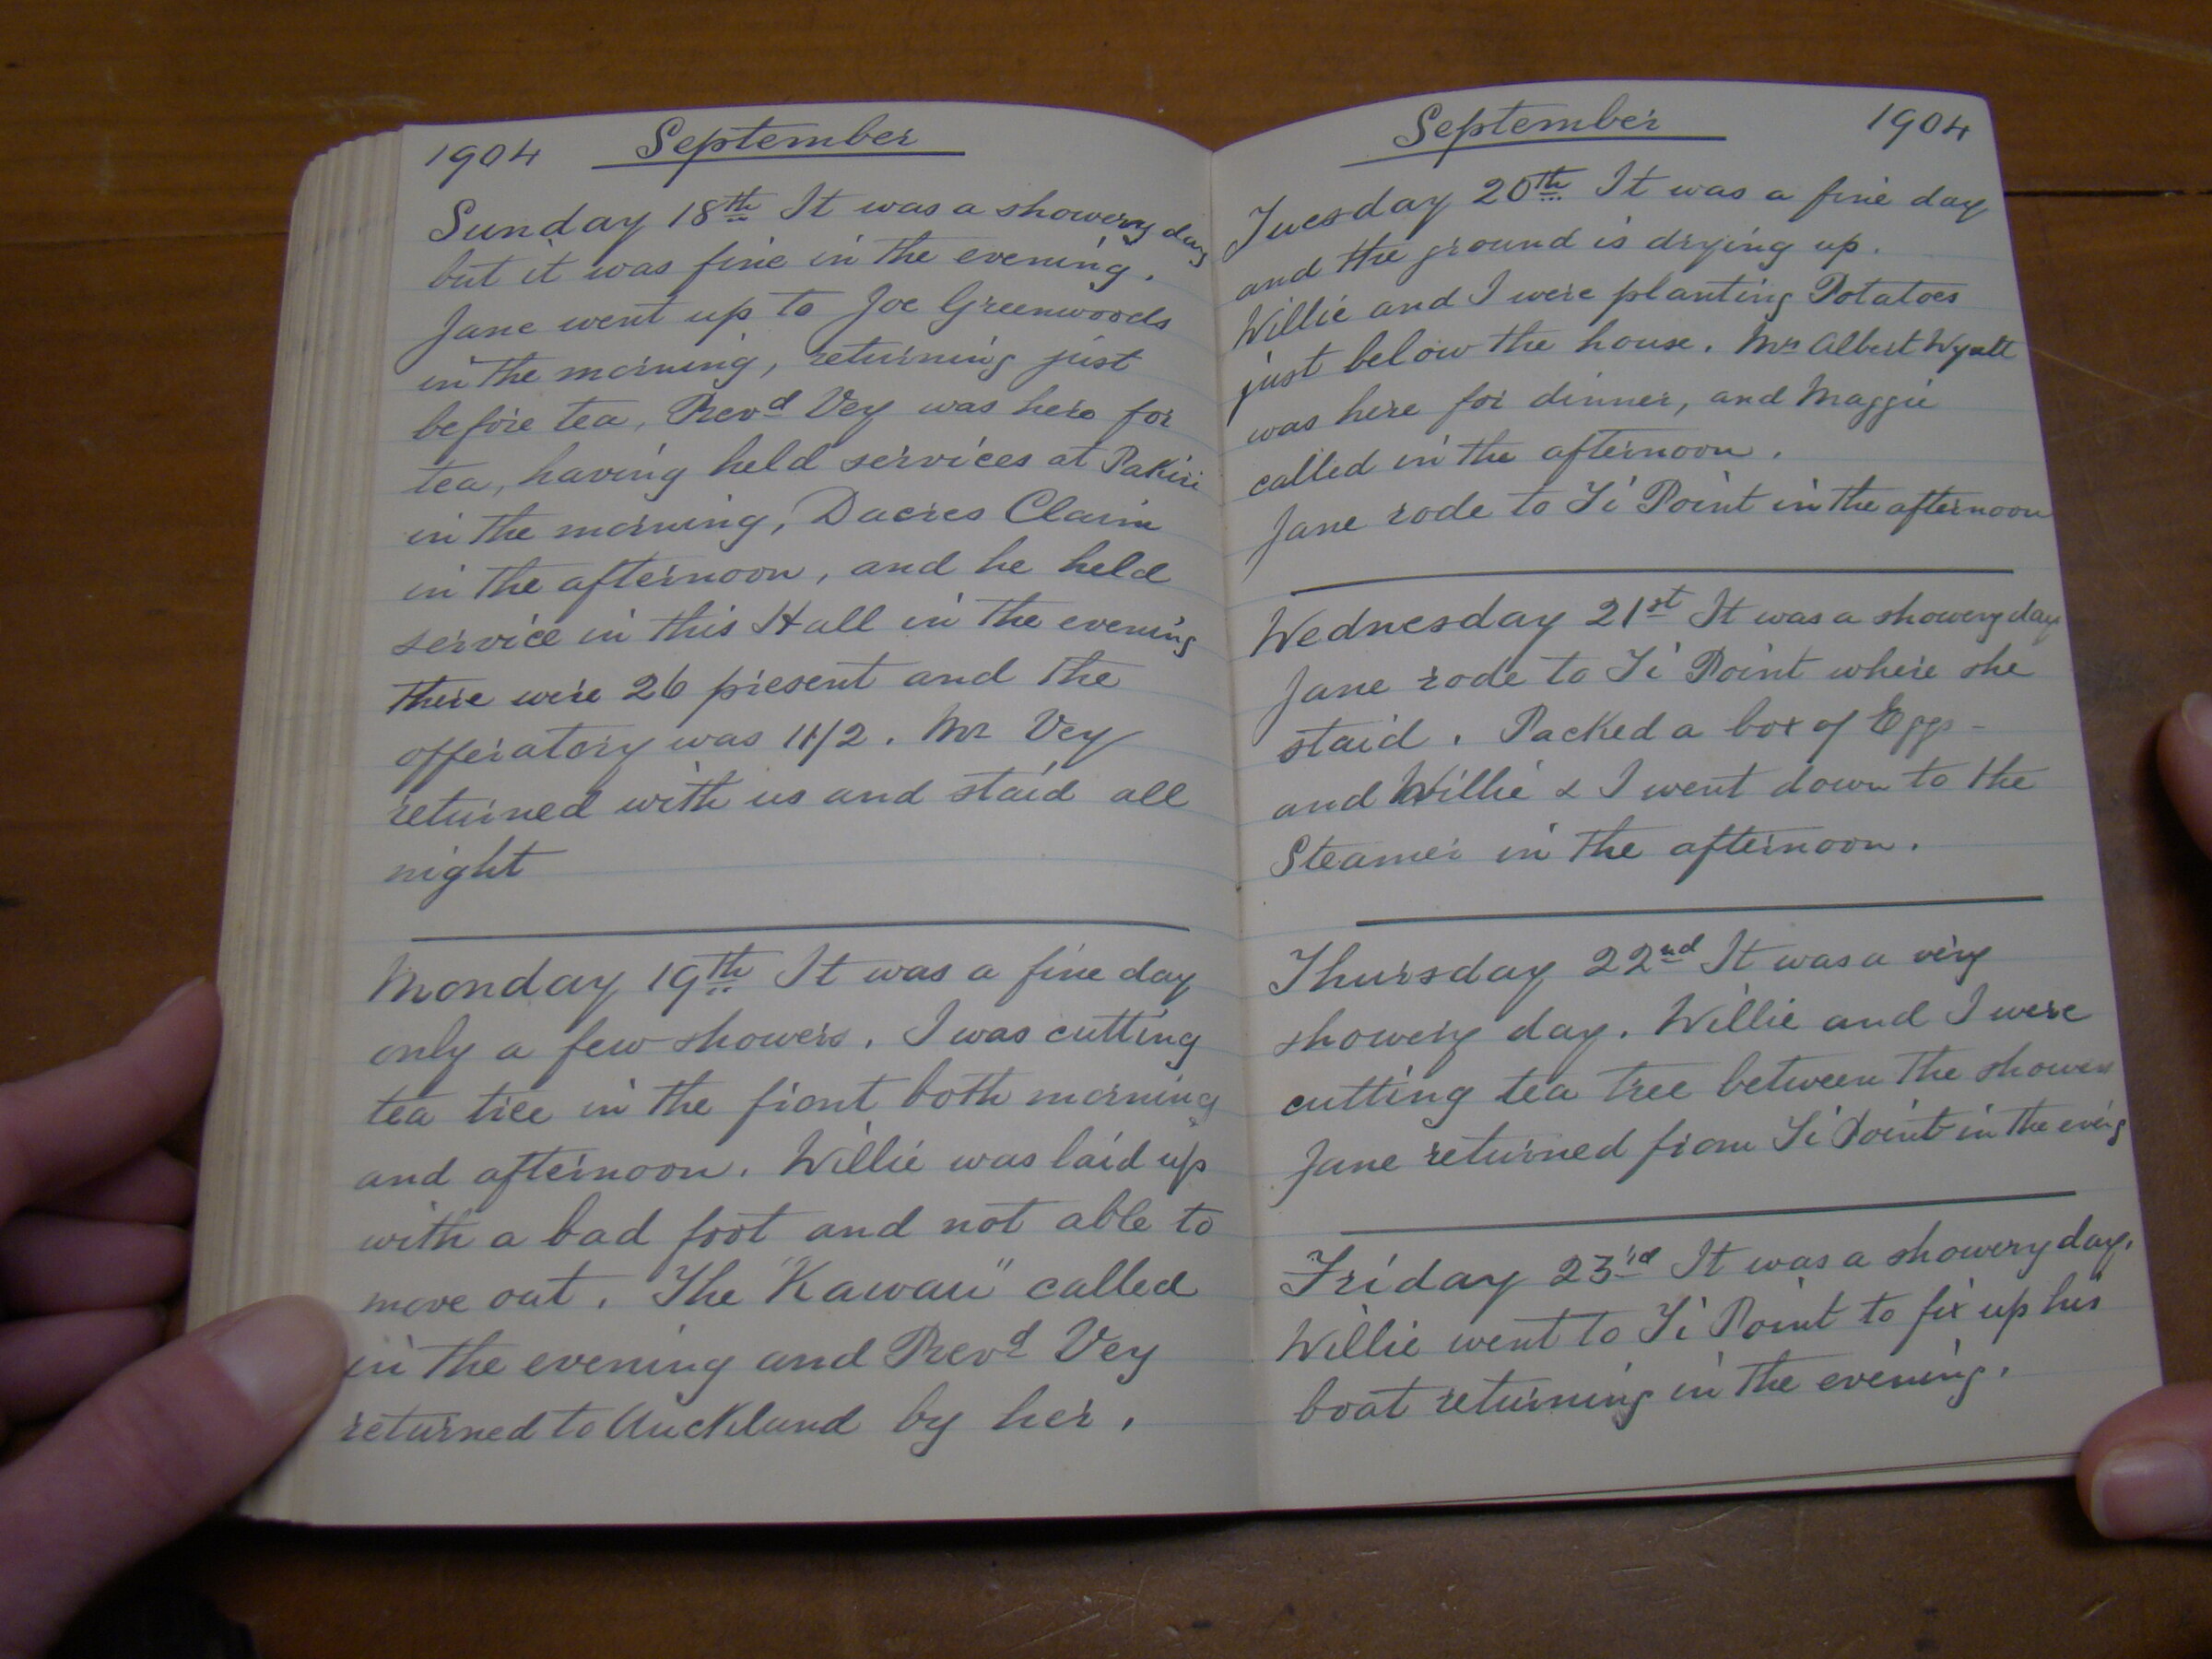 1904 September
Sunday 18th It was a showery day
but it was fine in the evening.
Jane went up to Joe Greenwoods
in the morning, returning just
before tea, Revd Vey was here for
tea, having held services at Pakiri
in the morning, Dacres Claim
in the afternoon, and he held
service in this Hall in the evening
there were 26 present and the
offeratory was 11/2. Mr Vey
returned with us and staid all
night
Monday 19th It was a fine day
only a few showers. I was cutting
tea tree in the front both morning
and afternoon. Willie was laid up
with a bad foot and not able to
move out. The "Kawau" called
in the evening and Revd Vey
returned to Auckland by her.
September 1904
Tuesday 20th It was a fine day
and the ground is drying up.
Willie and I were planting Potatoes
just below the house. Albert Wyatt
was here for dinner, and Maggie
called in the afternoon.
Jane rode to Ti Point in the afternoon
Wednesday 21st It was a showery day
Jane rode to Ti Point where she
staid. Packed a box of Eggs -
and Willie & I went down to the
Steamer in the afternoon.
Thursday 22nd It was a very
showery day. Willie and I were
cutting tea tree between the showers
Jane returned from Ti Point in the eveng
Friday 23rd It was a showery day.
Willie went to Ti Point to fix up his
boat returning in the evening.